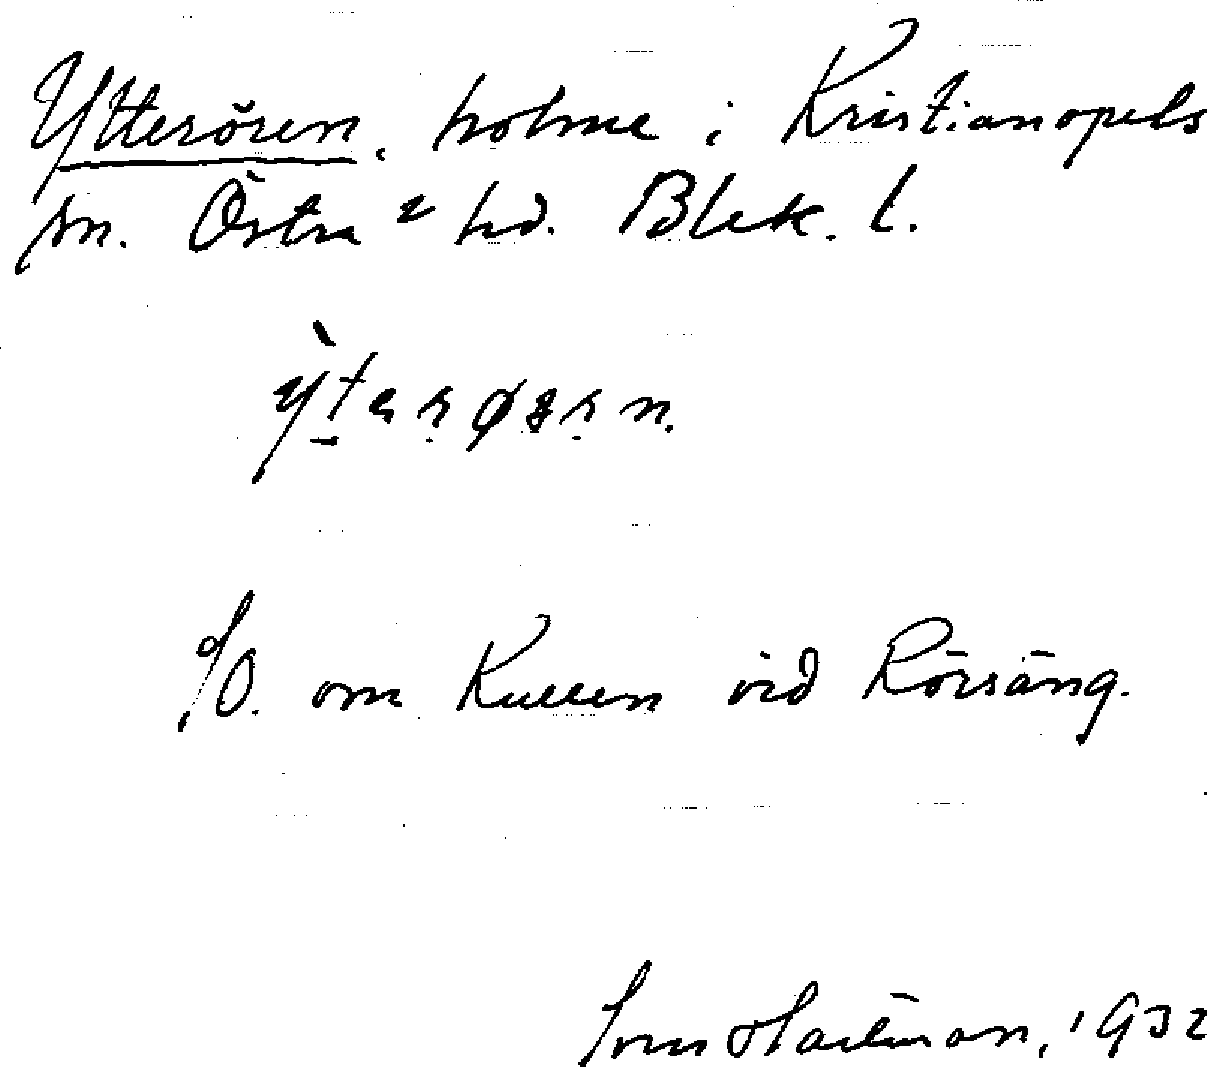 Ytterören, holme i Kristianopels
sn. Östra hd. Blek. l.
S/O. om Kullen vid Rörsäng.
Sven Hallman, 1932